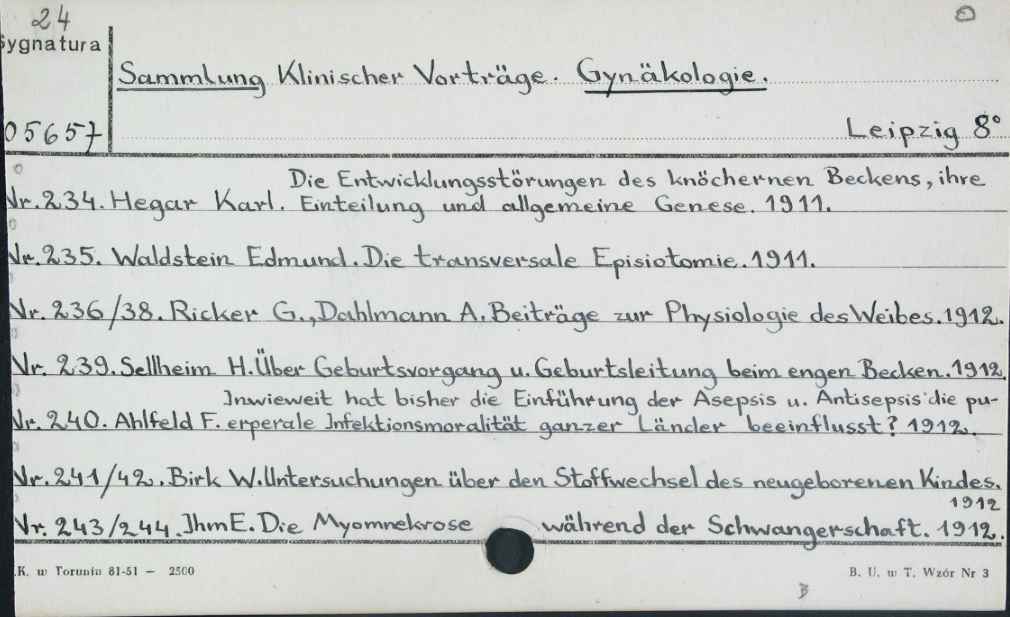 24
Sygnatura
Sammlung Klinischer Vorträge. Gynäkologie.
05657
Leipzig 8°
Die Entwicklungsstörungen des knöchernen Beckens, ihre
Nr. 234. Hegar Karl. Einteilung und allgemeine Genese. 1911.
Nr. 235. Waldstein Edmund. Die transversale Episiotomie. 1911.
Nr. 236/38. Ricker G., Dahlmann A. Beiträge zur Physiologie des Weibes. 1912.
Nr. 239. Sellheim H. Über Geburtsvorgang u. Geburtsleitung beim engen Becken. 1912.
Inwieweit hat bisher die Einführung der Asepsis u. Antisepsis die pu-
Nr. 240. Ahlfeld F. erperale Infektionsmoralität ganzer Länder beeinflusst? 1912.
Nr. 241/42. Birk W. Untersuchungen über den Stoffwechsel des neugeborenen Kindes.
1912
Nr. 243/244. Ihm E. Die Myomnekrose während der Schwangerschaft. 1912.
.K. w Toruniu 81-51 — 2500
B. U. w T. Wzór Nr 3
B